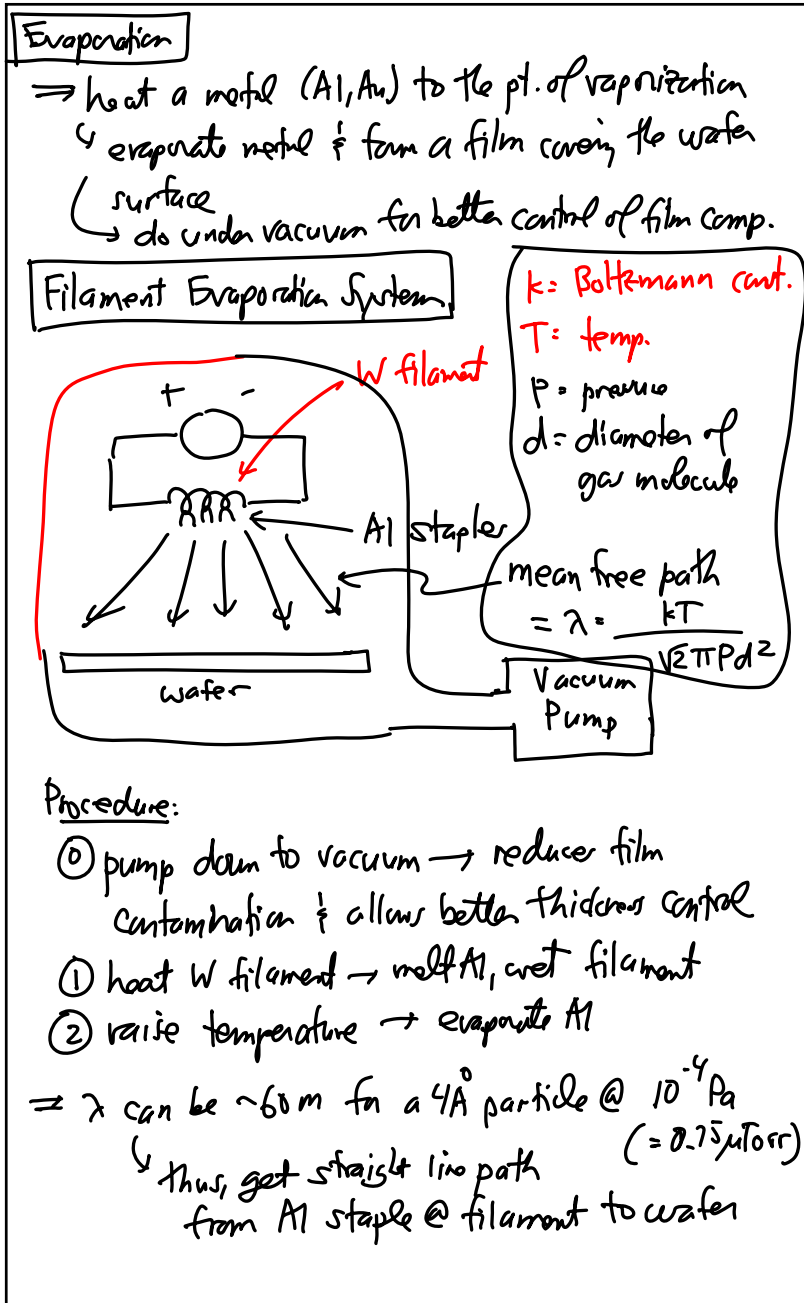 Evaporation
⇒ heat a metal (Al, Au) to the pt. of vaporization
↳ evaporate metal & form a film covering the wafer
surface
↳ do under vacuum for better control of film comp.
Filament Evaporation System
k = Boltzmann const.
T = temp.
P = pressure
d = diameter of
gas molecule
W filament
+ -
Al staples
mean free path
= λ = kT / √2 π P d²
wafer
Vacuum
Pump
Procedure:
⓪ pump down to vacuum → reduces film
contamination & allows better thickness control
① heat W filament → melt Al, wet filament
② raise temperature → evaporate Al
⇒ λ can be ~60m for a 4Å particle @ 10⁻⁴ Pa
(= 0.75 μTorr)
↳ thus, get straight line path
from Al staple @ filament to wafer